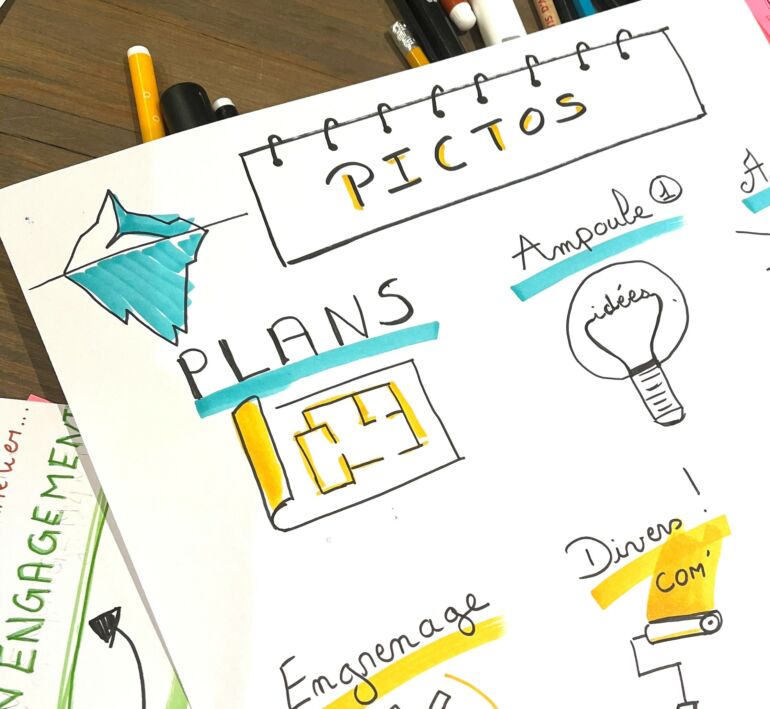 PICTOS
Ampoule 1
idées
PLANS
Divers !
COM'
Engrenage
ENGAGEMENT